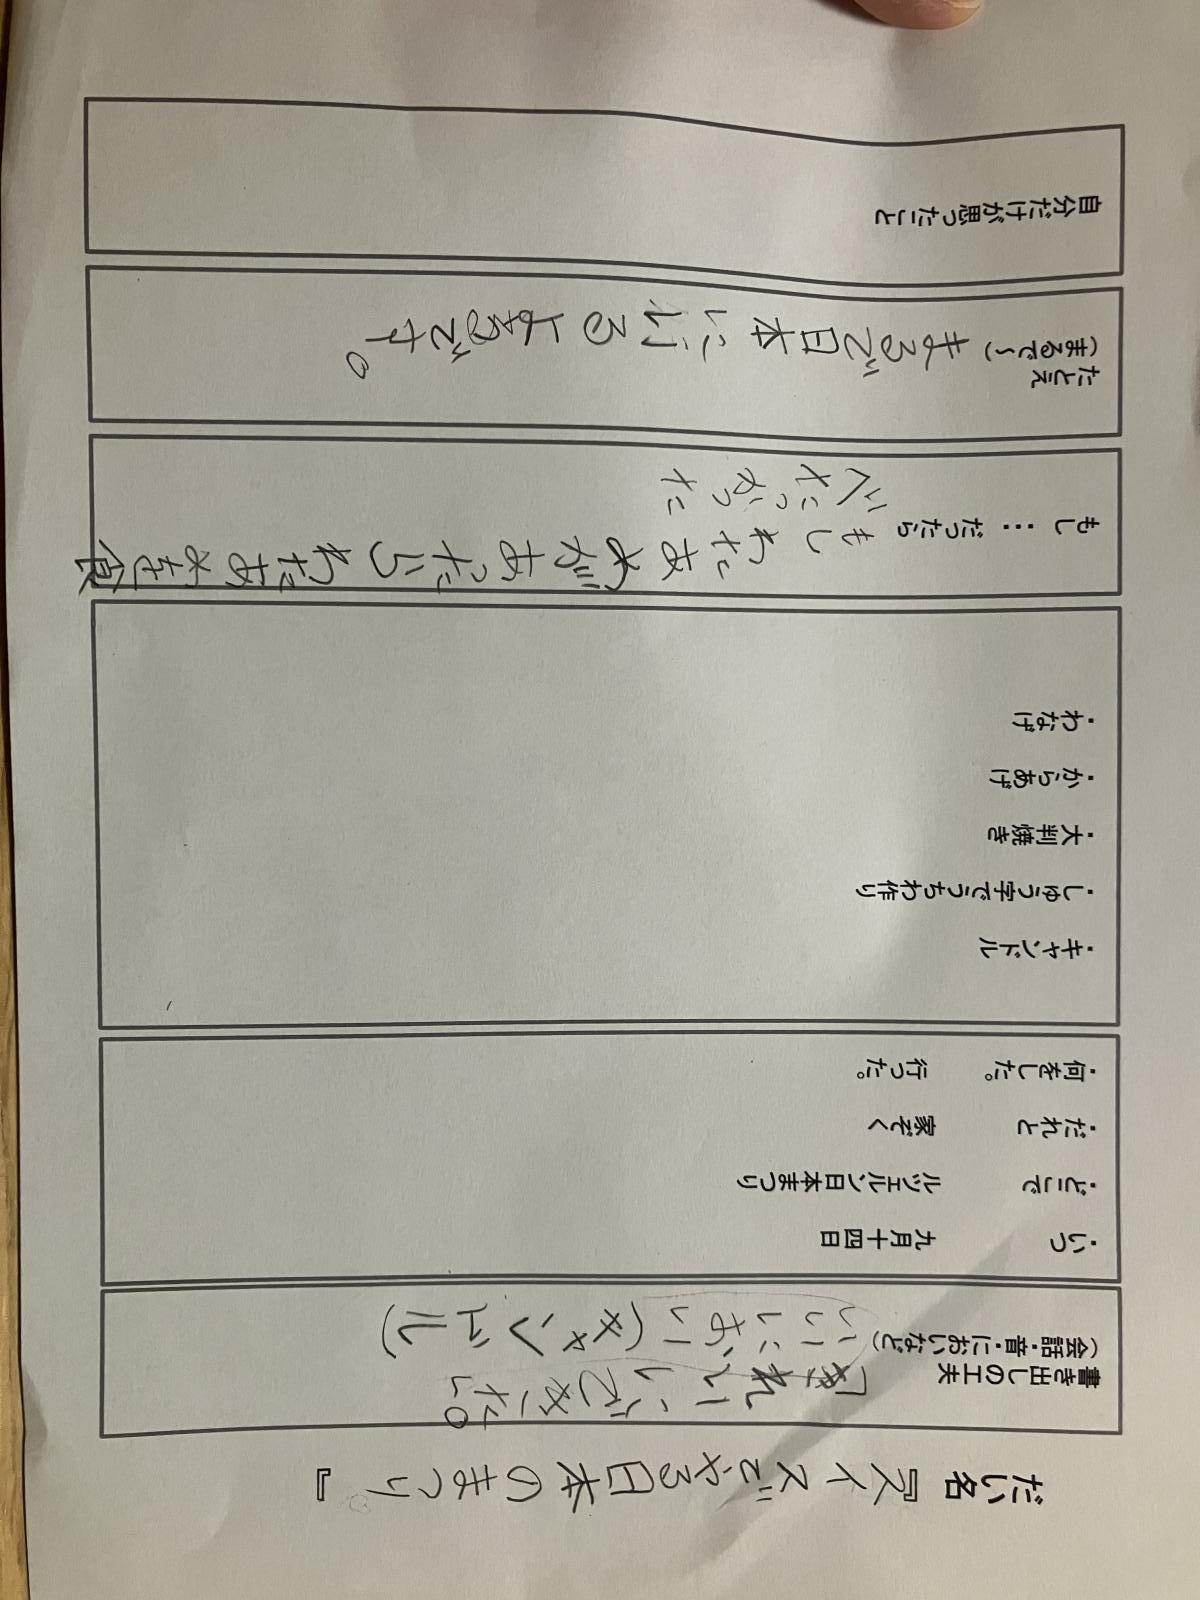 だい名『スイスでやる日本のまつり』
書き出しの工夫
（会話・音・においなど）
「きれいにできた。」
いいにおい（キャンドル）
・いつ 九月十四日
・どこで ルツェルン日本まつり
・だれと 家ぞく
・何をした。 行った。
・キャンドル
・しゅう字でうちわ作り
・大判焼き
・からあげ
・わなげ
もし…だったら
もしわたあめがあったらわたあめを食
べたかった
たとえ
（まるで～）
まるで日本にいるようです。
自分だけが思ったこと